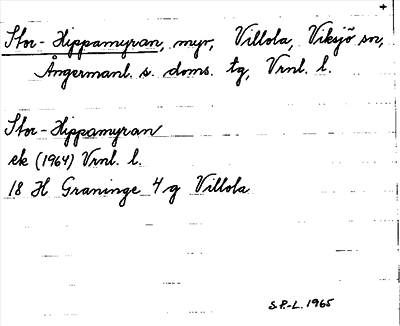 Stor-Hippamyran, myr, Villola, Viksjö sn,
Ångermanl. s. doms. tg, Vrnl. l.
Stor-Hippamyran
ek (1964) Vrnl. l.
18 H Graninge 4 g Villola
S.P.-L. 1965